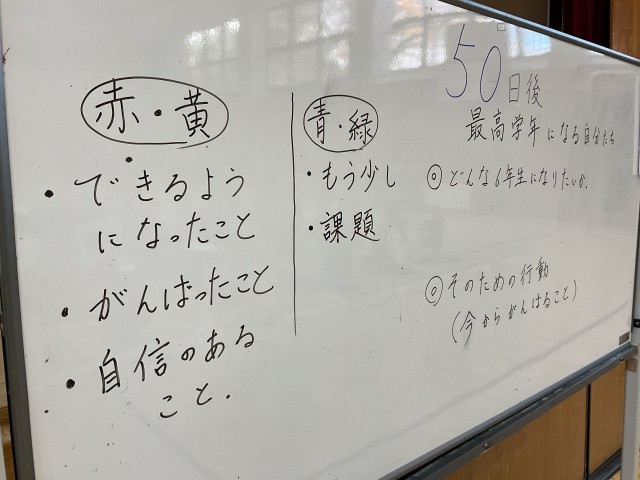 赤・黄
・できるよう
になったこと
・がんばったこと
・自信のある
こと.
青・緑
・もう少し
・課題
50日後
最高学年になる自分たち
◎どんな6年生になりたいか.
◎そのための行動
(今からがんばること)